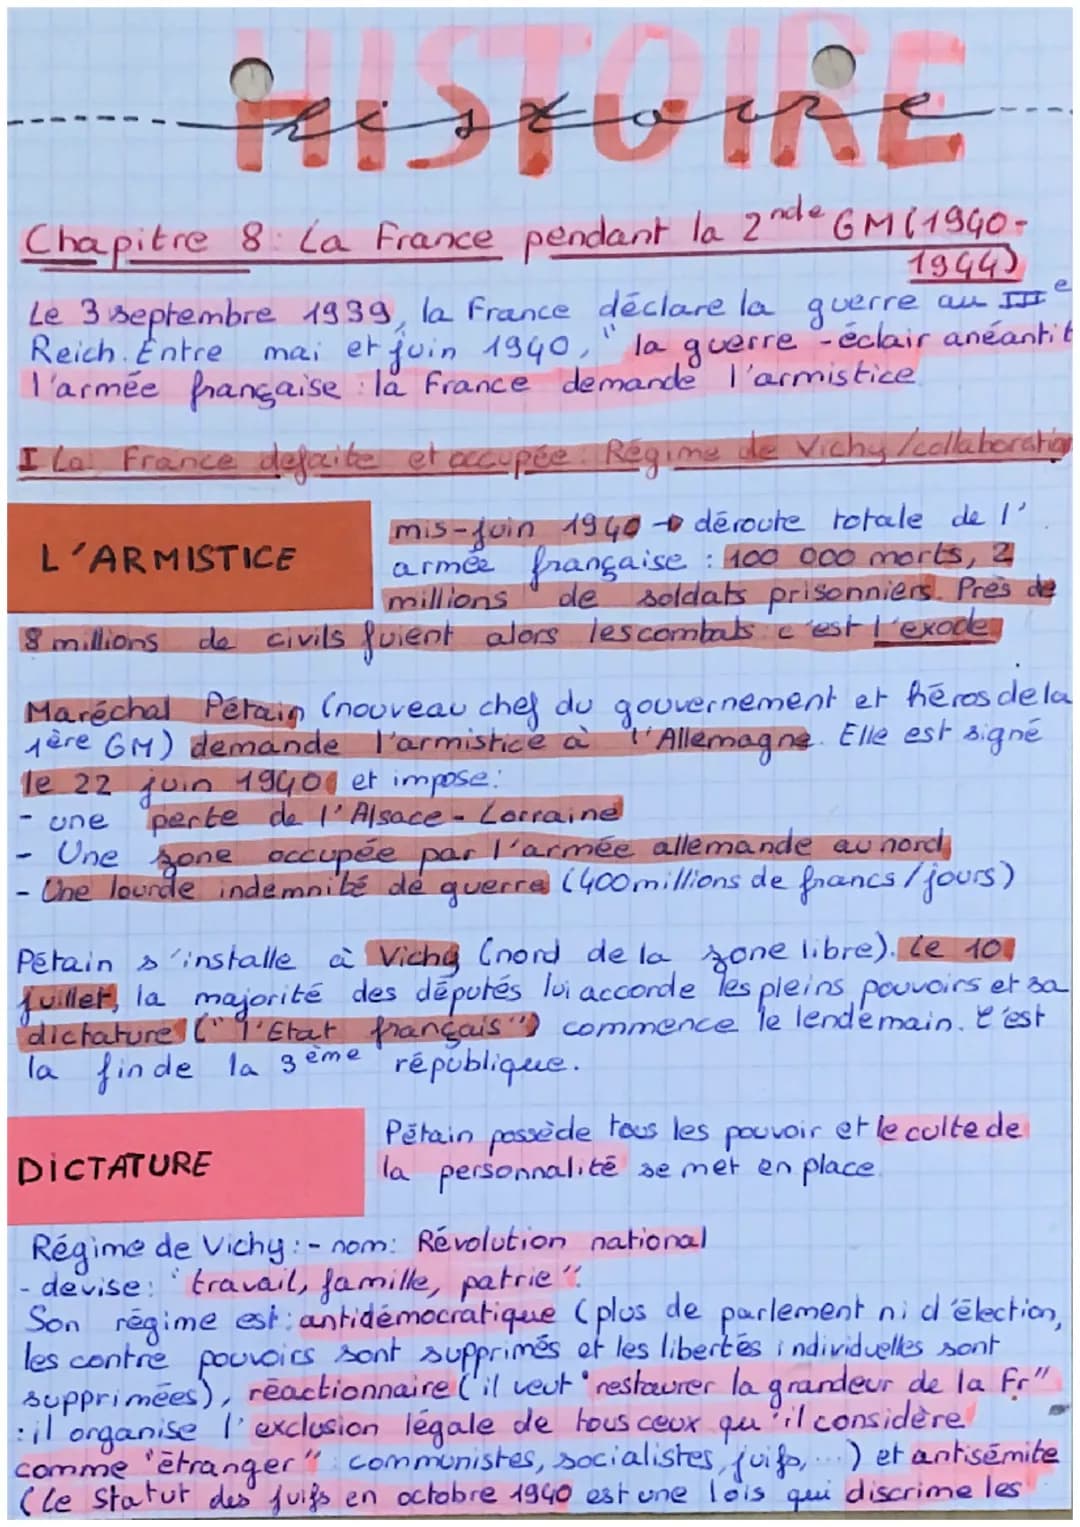 HISTOIRE
histoire
Chapitre 8: La France pendant la 2nde GM (1940-
1944)
Le 3 septembre 1939, la France déclare la guerre au IIIe
Reich. Entre mai et juin 1940, " la guerre -éclair anéantit
l'armée française : la France demande l'armistice
I La France défaite et occupée : Régime de Vichy/collaboration
L'ARMISTICE
mis-juin 1940 → déroute totale de l'
armée française : 100 000 morts, 2
millions de soldats prisonniers. Près de
8 millions de civils fuient alors les combats : c'est l'exode
Maréchal Pétain (nouveau chef du gouvernement et héros de la
1ère GM) demande l'armistice à l'Allemagne. Elle est signé
le 22 juin 1940 et impose:
- une perte de l'Alsace - Lorraine
- Une zone occupée par l'armée allemande au nord
- Une lourde indemnité de guerre (400 millions de francs/jours)
Pétain s'installe à Vichy (nord de la zone libre). Le 10
juillet, la majorité des députés lui accorde les pleins pouvoirs et sa
dictature (" l'Etat français") commence le lendemain. C'est
la fin de la 3ème république.
DICTATURE
Pétain possède tous les pouvoir et le culte de
la personnalité se met en place.
Régime de Vichy: - nom: Révolution national
- devise: "travail, famille, patrie".
Son régime est: antidémocratique (plus de parlement ni d'élection,
les contre pouvoirs sont supprimés et les libertés individuelles sont
supprimées), réactionnaire (il veut "restaurer la grandeur de la Fr"
: il organise l'exclusion légale de tous ceux qu'il considère
comme "étranger" : communistes, socialistes, juifs, ...) et antisémite
(Le Statut des juifs en octobre 1940 est une lois qui discrime les